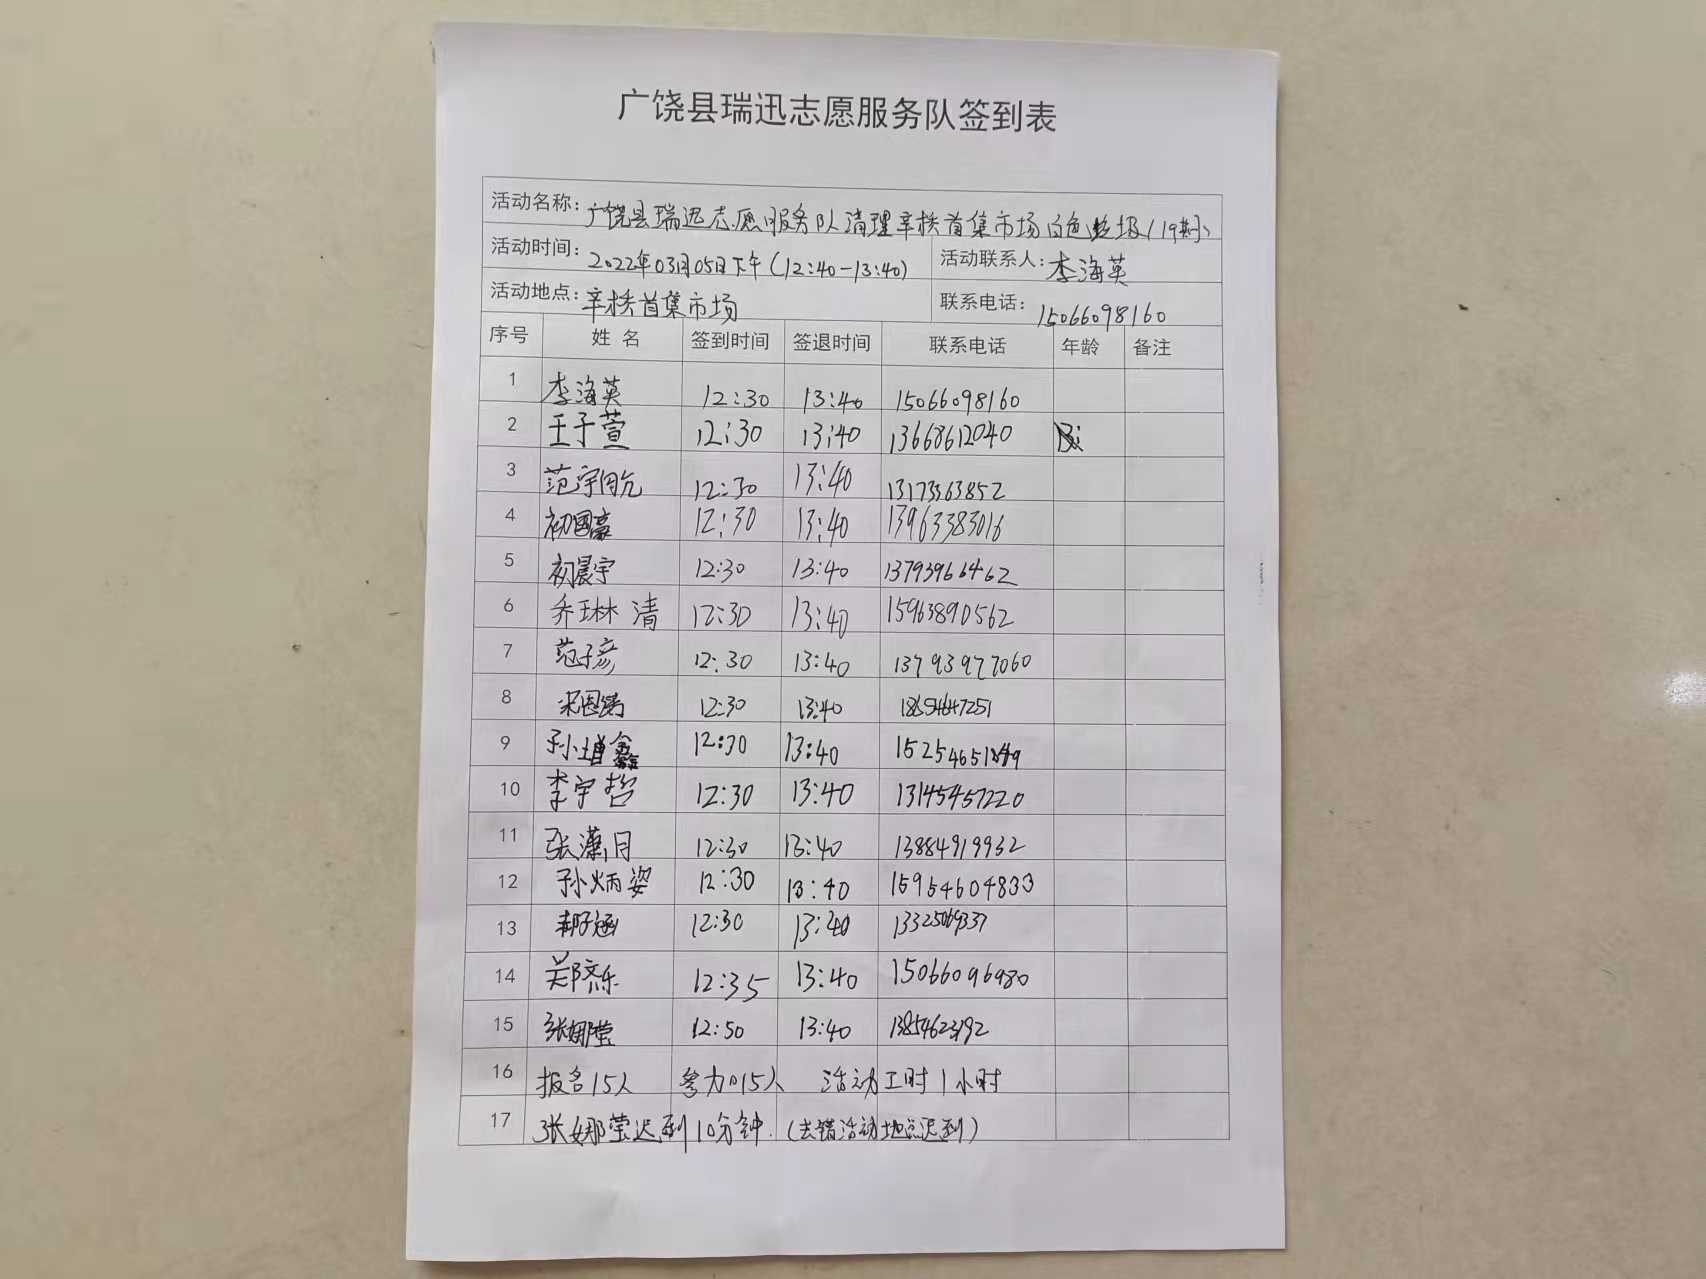 广饶县瑞迅志愿服务队签到表
活动名称: 广饶县瑞迅志愿服务队清理辛桥首集市场白色垃圾(19期)
活动时间: 2022年03月05日下午(12:40-13:40) 活动联系人: 李海英
活动地点: 辛桥首集市场 联系电话: 15066098160
序号 姓名 签到时间 签退时间 联系电话 年龄 备注
1 李海英 12:30 13:40 15066098160
2 王子萱 12:30 13:40 13668612040
3 范宇 12:30 13:40 13173363852
4 初国豪 12:30 13:40 13963383016
5 初晨宇 12:30 13:40 13793966462
6 乔琳清 12:30 13:40 15963890562
7 范子彦 12:30 13:40 13793977060
8 宋恩 12:30 13:40 18654647251
9 孙增鑫 12:30 13:40
10 李宇哲 12:30 13:40 13145457220
11 张潇月 12:30 13:40 13884919932
12 孙炳姿 12:30 13:40 15954604833
13 郝子涵 12:30 13:40
14 郑济乐 12:35 13:40 15066096980
15 张娜莹 12:50 13:40 13854623192
16 报名15人 参加15人 活动工时1小时
17 张娜莹迟到10分钟.(去错活动地点迟到)